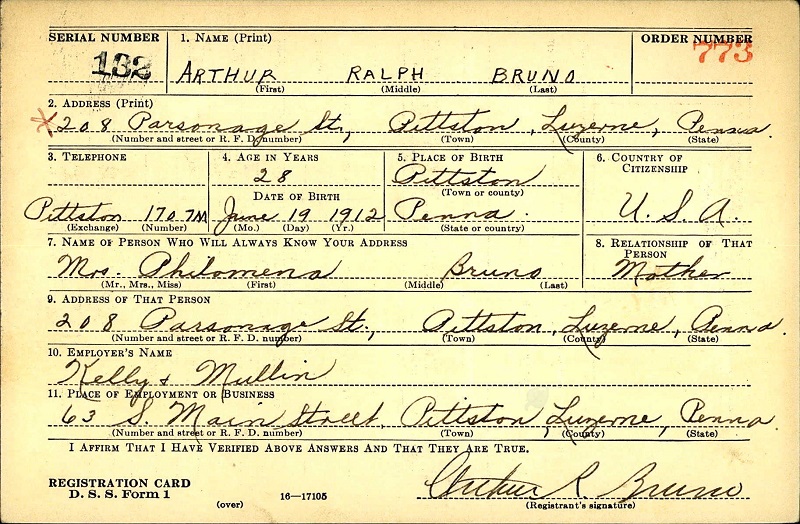 SERIAL NUMBER 1. NAME (Print) ORDER NUMBER
132 ARTHUR RALPH BRUNO 773
(First) (Middle) (Last)
2. ADDRESS (Print)
208 Parsonage St., Pittston, Luzerne, Penna.
(Number and street or R. F. D. number) (Town) (County) (State)
3. TELEPHONE 4. AGE IN YEARS 5. PLACE OF BIRTH 6. COUNTRY OF CITIZENSHIP
28 Pittston
(Town or county)
DATE OF BIRTH
Pittston 1707M June 19 1912 Penna. U. S. A.
(Exchange) (Number) (Mo.) (Day) (Yr.) (State or country)
7. NAME OF PERSON WHO WILL ALWAYS KNOW YOUR ADDRESS 8. RELATIONSHIP OF THAT PERSON
Mrs. Philomena Bruno Mother
(Mr., Mrs., Miss) (First) (Middle) (Last)
9. ADDRESS OF THAT PERSON
208 Parsonage St., Pittston, Luzerne, Penna.
(Number and street or R. F. D. number) (Town) (County) (State)
10. EMPLOYER'S NAME
Kelly & Mullin
11. PLACE OF EMPLOYMENT OR BUSINESS
63 S. Main Street, Pittston, Luzerne, Penna.
(Number and street or R. F. D. number) (Town) (County) (State)
I AFFIRM THAT I HAVE VERIFIED ABOVE ANSWERS AND THAT THEY ARE TRUE.
REGISTRATION CARD
D. S. S. Form 1 (over) 16—17105 Arthur R. Bruno
(Registrant's signature)